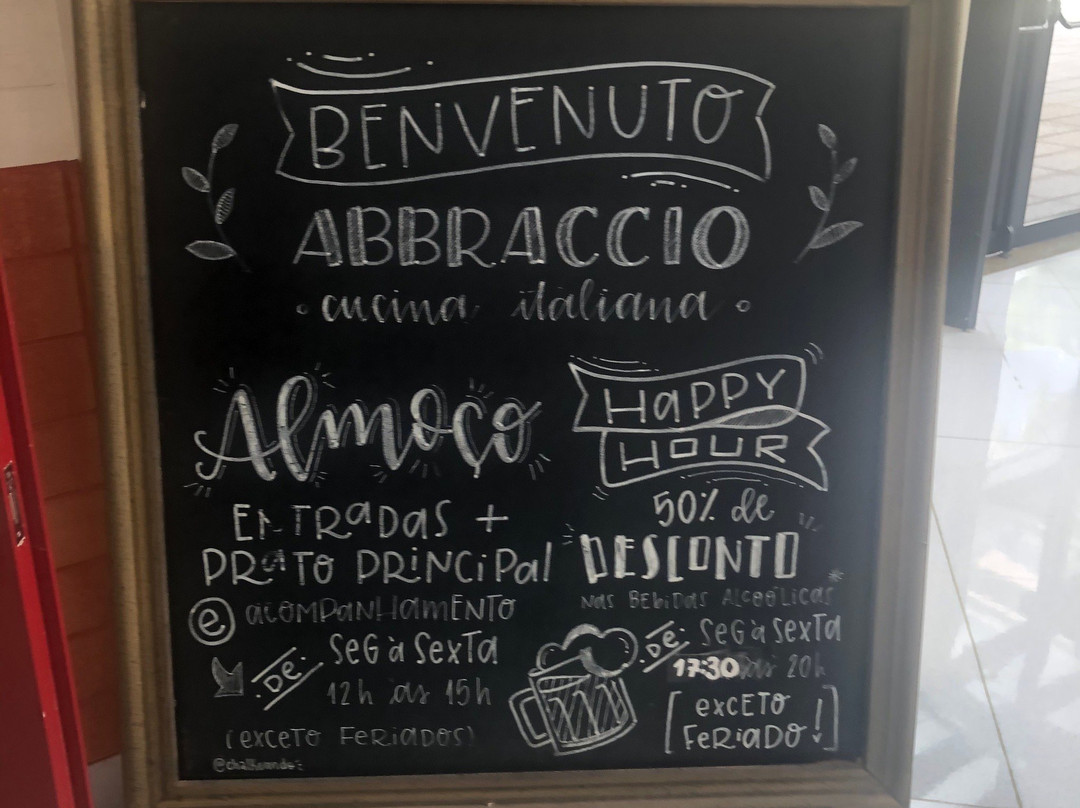 BENVENUTO
ABBRACCIO
cucina italiana
Almoço
ENTRADAS +
PRATO PRINCIPAL
e ACOMPANHAMENTO
DE: SEG à SEXTA
12h às 15h
(EXCETO FERIADOS)
HAPPY
HOUR
50% de
DESCONTO
NAS BEBIDAS ALCOÓLICAS*
DE: SEG à SEXTA
17:30 às 20h
[EXCETO
FERIADO!]